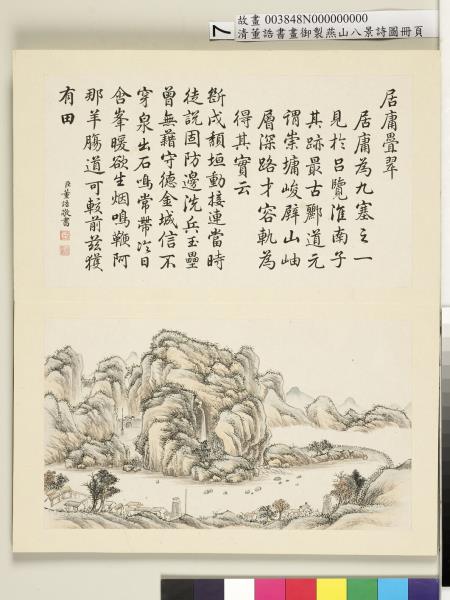 7
故畫 003848N000000000
清董誥書畫御製燕山八景詩圖冊頁
居庸疊翠
居庸為九塞之一
見於呂覽淮南子
其跡最古酈道元
謂崇墉峻壁山岫
層深路才容軌為
得其實云
斷戍頹垣動接連當時
徒說固防邊洗兵玉壘
曾無藉守德金城信不
穿泉出石鳴常帶冷日
含峯暖欲生烟鳴鞭阿
那羊腸道可較前茲獲
有田
臣董誥敬書